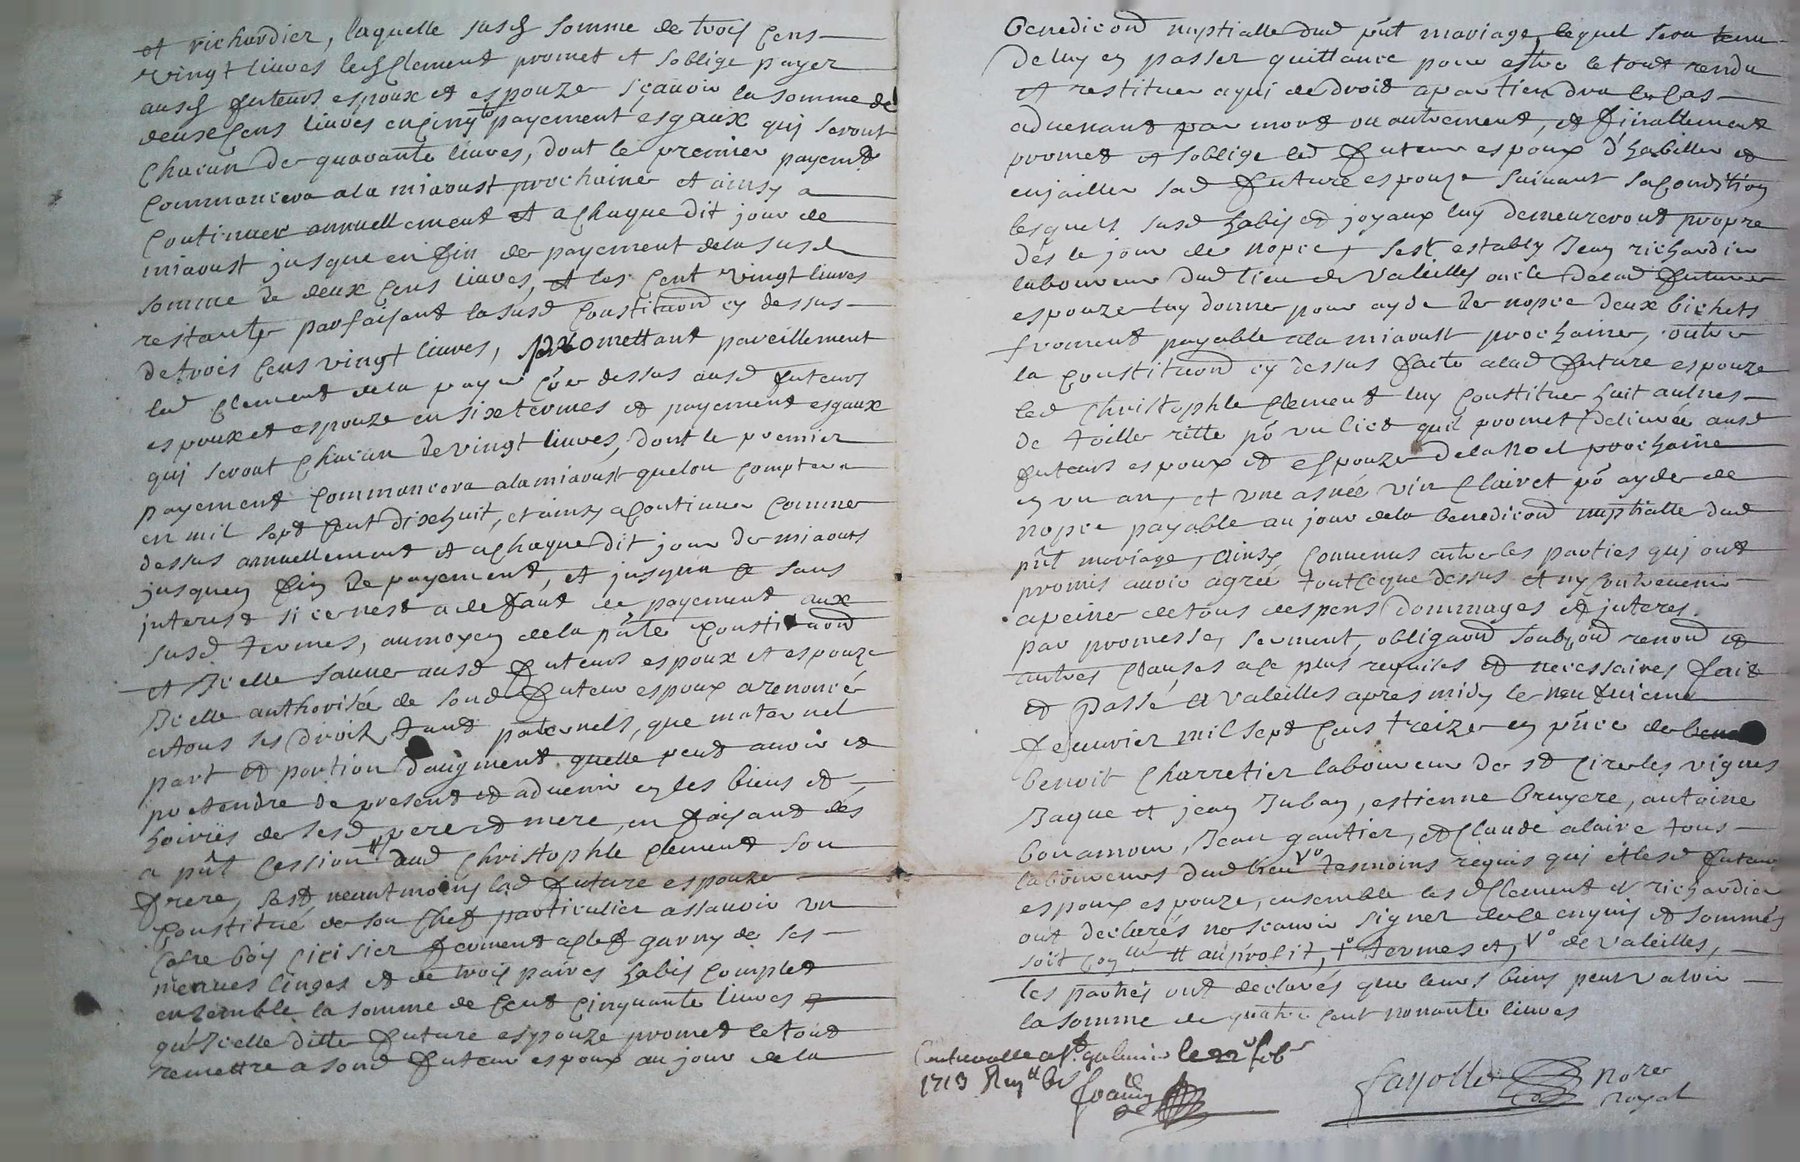 et richardier, laquelle susd somme de trois cens
vingt liuves led Clement promet et soblige payer
ausd futeurs espoux et espouze sçauoir la somme de
deux cens liuves en cinq payement esgaux quj seront
chacun de quarante liuves, dont le premier payemt
commancera ala miaoust prochaine et ainsy a
continuer annuellement et a chaque dit jour de
miaoust jusque en fin de payement dela susd
somme de deux cens liuves, et les cent vingt liuves
restante parfaisant la susd constitaõn cy dessus
de trois cens vingt liuves, promettant pareillement
led Clement dela payer cõe dessus ausd futeurs
espoux et espouze en six termes et payement esgaux
quj seront chacun de vingt liuves, dont le premier
payement commancera ala miaoust quelon comptera
en mil sept cent dixhuit, et ainsy a continuer comme
dessus annuellement et a chaque dit jour de miaoust
jusquen fin de payement, et jusqua ce sans
interest si ce nest a defaut de payement aux
susd termes, aumoyen dela pñte constitaõn
et icelle sauue ausd futeurs espoux et espouze
Icelle authorisée de sond futeur espoux a renoncé
atous ses droits tant paternels, que maternel
part et portion daugment quelle peut auoir et
pretendre de present et aduenir en les biens et
hoiries de sesd pere et mere, en faisant dés
a pñt cession aud Christophle Clement son
frere, sest neantmoins lad future espouze
constitué de son chef particulier assauoir un
cofre bois cirisier fermant a clef garny de ses
menues linges et de trois paires habis complet
ensemble la somme de cent cinquante liuves
qu'Icelle ditte future espouze promet le tout
remettre a sond futeur espoux au jour de la
benedicõn nuptialle dud pñt mariage, lequel sera tenu
deluy en passer quittance pour estre le tout rendu
et restituer a qui de droit apartiendra le cas
aduenant par mort ou autrement, et finallement
promet et soblige led futeur espoux d'habiller et
enjailler sad future espouze suiuant sa condition
lesquels susd habis et joyaux luy demeureront propre
dés le jour de nopce, sest estably Jean richardier
laboureur dud lieu de Valeilles oncle de lad future
espouze luy donner pour ayde de nopce deux bichets
froment payable ala miaoust prochaine, outre
la constitaõn cy dessus faite alad future espouze
led Christophle Clement luy constitue huit aulnes
de toille ritte põ un lict quil promet deliurée ausd
futeurs espoux et espouze dela noel prochaine
en un an, et une asnée vin clairet põ ayde de
nopce payable au jour dela benedicõn nuptialle dud
pñt mariage, ainsy conuenus entre les parties quj ont
promis auoir agréé tout ceque dessus et ny contreuenir
apeine de tous despens dommages et interes
par promesse, serment, obligaõn soubzõn renonõn et
autres clauses a ce plus requises et necessaires fait
et passé a Valeilles apres midy le neufuieme
feburier mil sept cens treize en pñce de
Benoit Charretier laboureur de st Cire les vignes
Jaque et jean Juban, estienne Bruyere, antoine
bonamour, Jean gautier, et Claude alaire tous
laboureurs dud lieu Vo tesmoins requis quj et lesd futeur
espoux espouze, ensemble lesd Clement et richardier
ont declarés ne scauoir signer de ce enquis et sommés
soit au profit, to termes et, Vo de Valeilles,
les parties ont declarés que leurs biens peut valoir
la somme de quatre cent nonante liuves
Controolle a st galmier le 22 feb
1713
fayolle nore
royal